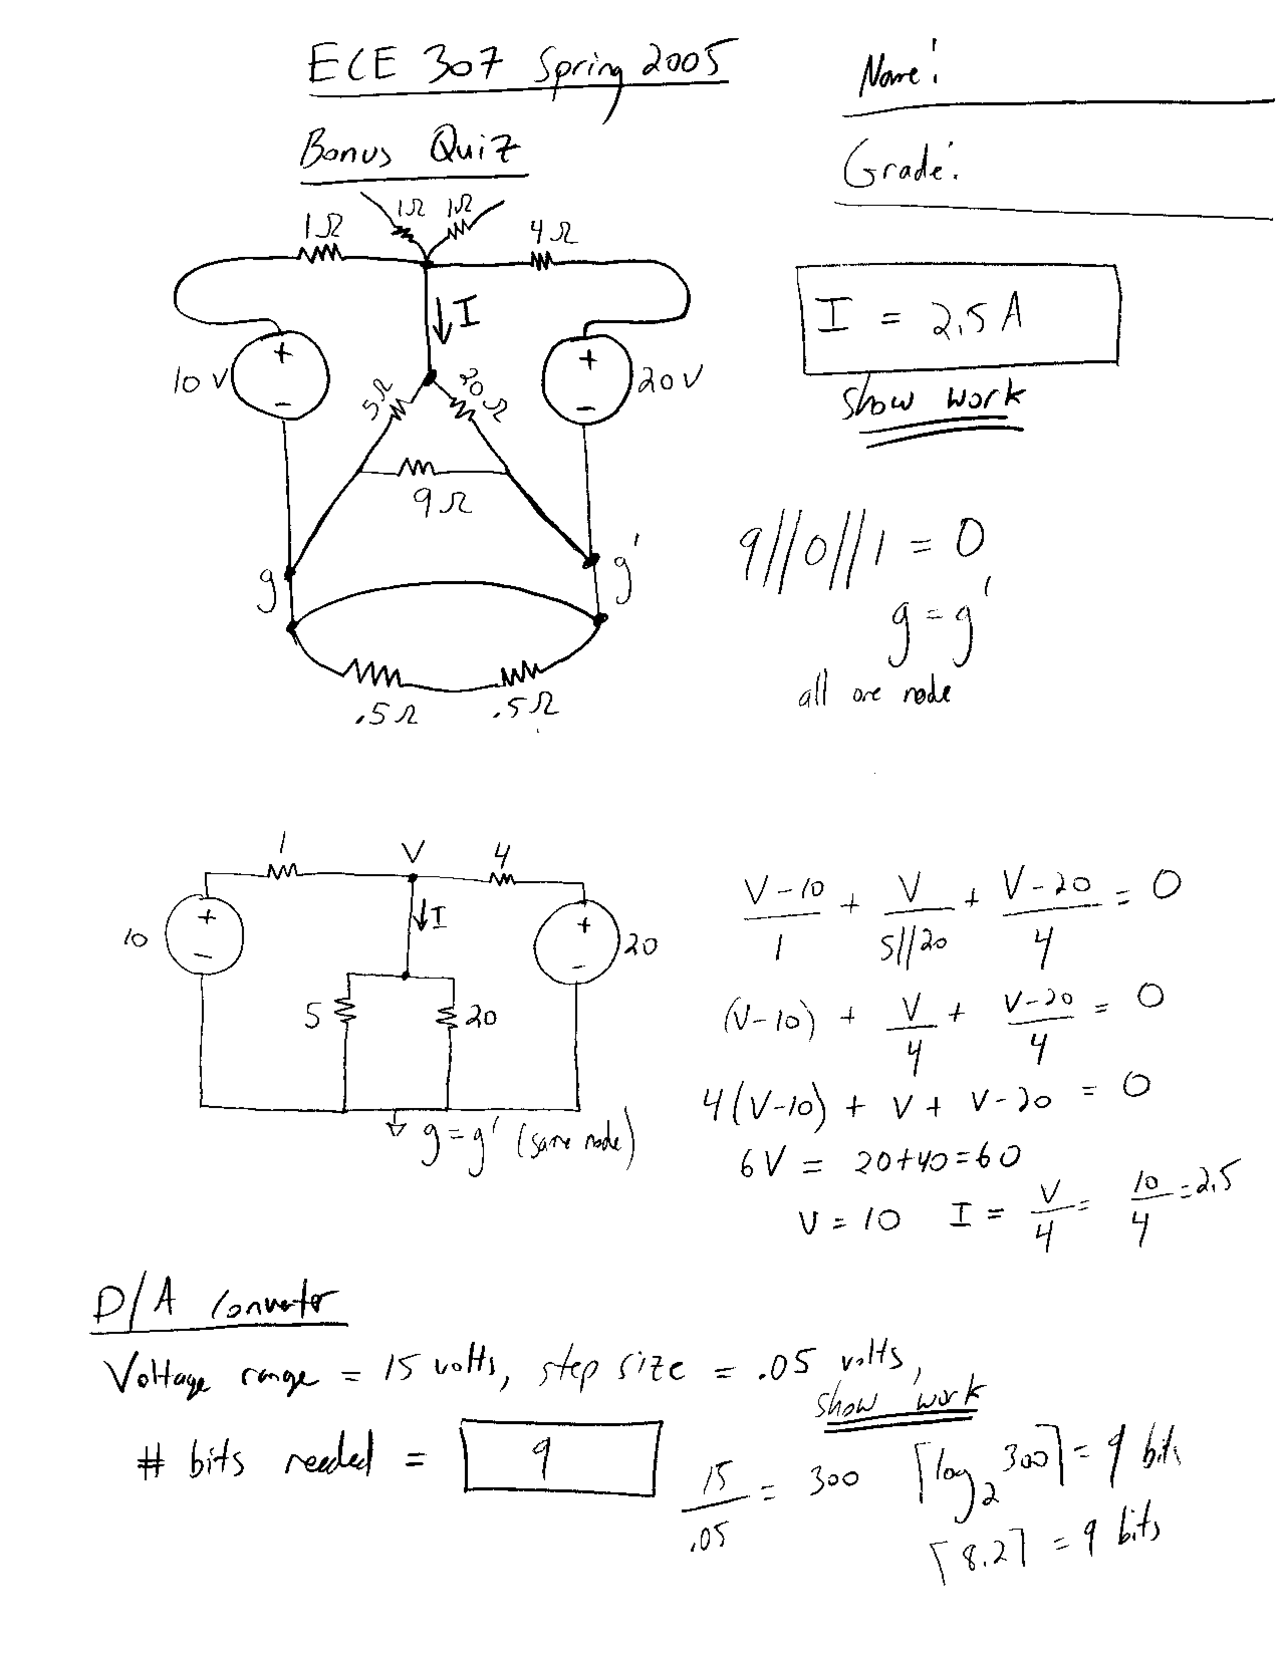 ECE 307 Spring 2005
Name:
Bonus Quiz
Grade:
1Ω 1Ω
1Ω 4Ω
I
I = 2.5 A
10 V + -
+ - 20 V
5Ω 20Ω
show work
9Ω
9//0//1 = 0
g g'
g = g'
all one node
.5Ω .5Ω
1 V 4
10 + - I + - 20
5 20
g = g' (same node)
(V-10)/1 + V/(5//20) + (V-20)/4 = 0
(V-10) + V/4 + (V-20)/4 = 0
4(V-10) + V + V-20 = 0
6V = 20+40=60
V = 10 I = V/4 = 10/4 = 2.5
D/A converter
Voltage range = 15 volts, step size = .05 volts,
show work
# bits needed = 9
15/.05 = 300 ⌈log₂ 300⌉ = 9 bits
⌈8.2⌉ = 9 bits